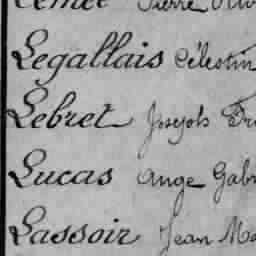 Pierre
Legallais Célestin
Lebret Joseph
Lucas Ange Gabr
Lassoir Jean Ma